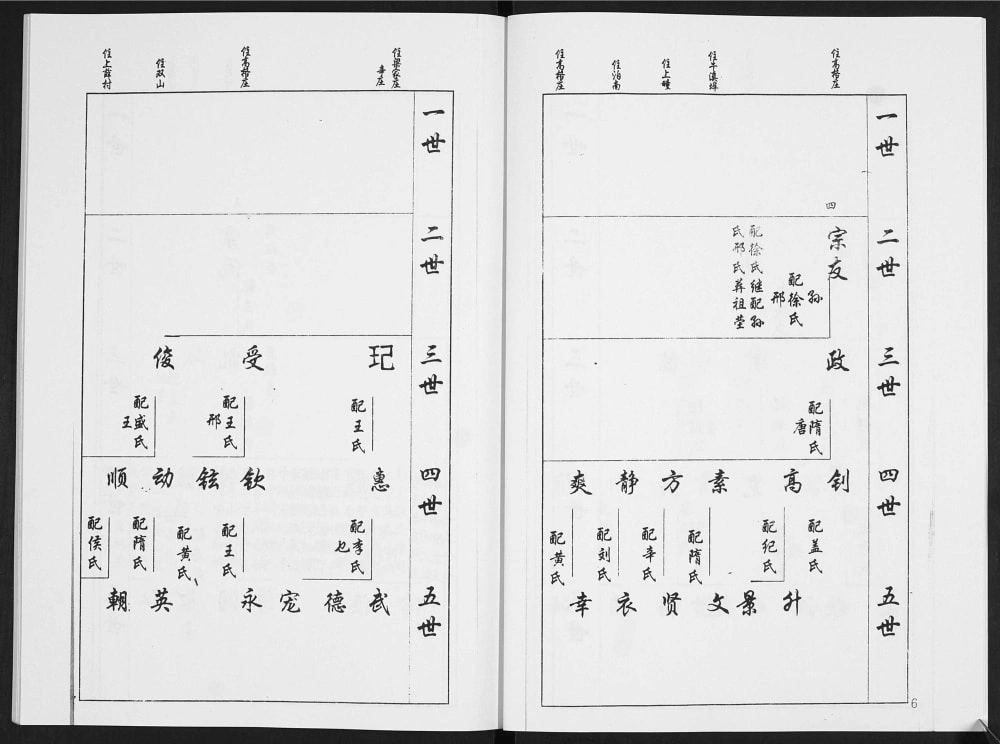 住高格庄
住上疃
住泊南
住高格庄
一世
二世
三世
四世
五世
四
宗友
孙
配徐氏
邢
配徐氏继配孙
氏邢氏葬祖茔
政
配隋氏
唐
钊
高
素
方
静
爽
配盖氏
配纪氏
配隋氏
配辛氏
配刘氏
配黄氏
升
景
文
贤
衣
幸
6
住梁家庄
辛庄
住高格庄
住双山
住上薛村
一世
二世
三世
四世
五世
玘
受
俊
配王氏
配王氏
邢
配盛氏
王
惠
钦
铉
动
顺
配李氏
也
配王氏
配黄氏
配隋氏
配侯氏
武
德
宠
永
英
朝